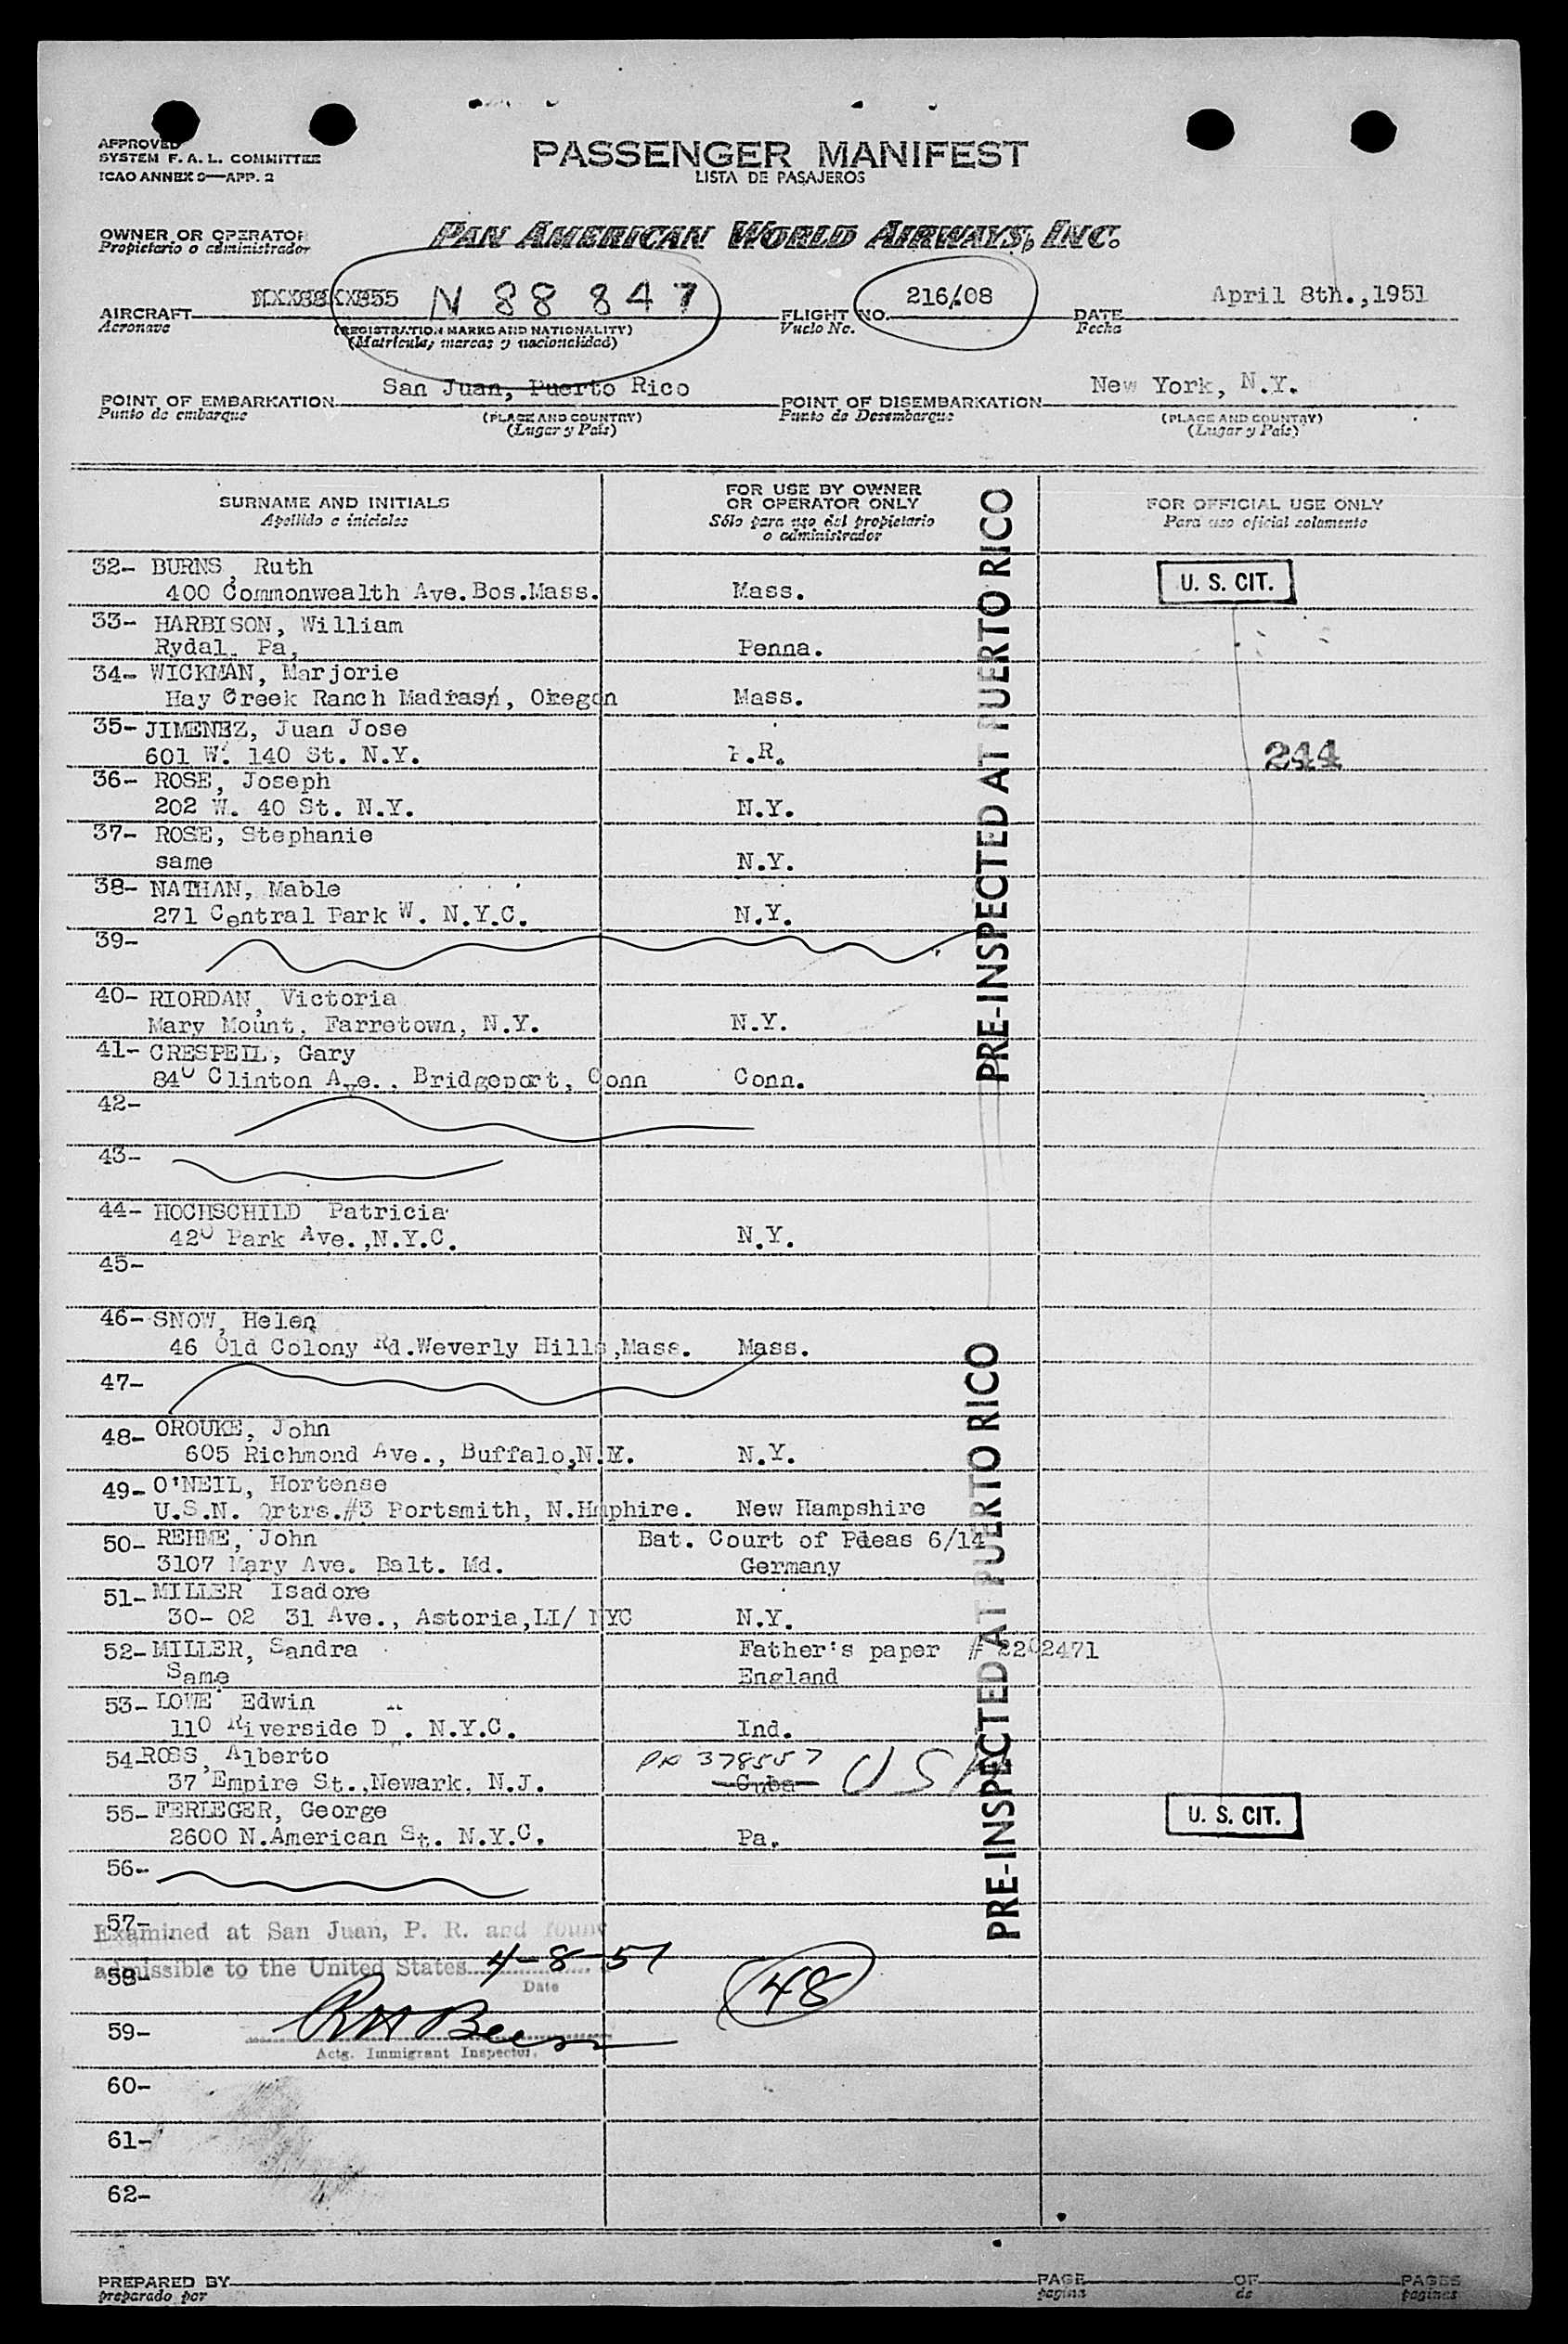 APPROVED
SYSTEM F. A. L. COMMITTEE
ICAO ANNEX 9—APP. 2
PASSENGER MANIFEST
LISTA DE PASAJEROS
OWNER OR OPERATOR
Propietario o administrador
PAN AMERICAN WORLD AIRWAYS, INC.
AIRCRAFT N 88 847 FLIGHT NO. 216/08 DATE April 8th.,1951
Aeronave (REGISTRATION MARKS AND NATIONALITY) Vuelo No. Fecha
(Matricula, marcas y nacionalidad)
POINT OF EMBARKATION San Juan, Puerto Rico POINT OF DISEMBARKATION New York, N.Y.
Punto de embarque (PLACE AND COUNTRY) Punto de Desembarque (PLACE AND COUNTRY)
(Lugar y País) (Lugar y País)
SURNAME AND INITIALS
Apellido e iniciales
FOR USE BY OWNER
OR OPERATOR ONLY
Sólo para uso del propietario
o administrador
FOR OFFICIAL USE ONLY
Para uso oficial solamente
32- BURNS, Ruth
400 Commonwealth Ave.Bos.Mass. Mass. U. S. CIT.
33- HARBISON, William
Rydal. Pa, Penna.
34- WICKMAN, Marjorie
Hay Creek Ranch , Oregon Mass.
35- JIMENEZ, Juan Jose
601 W. 140 St. N.Y. P.R. 244
36- ROSE, Joseph
202 W. 40 St. N.Y. N.Y.
37- ROSE, Stephanie
same N.Y.
38- NATHAN, Mable
271 Central Park W. N.Y.C. N.Y.
39-
40- RIORDAN, Victoria
Mary Mount, Farretown, N.Y. N.Y.
41- CRESPEIL, Gary
840 Clinton Ave., Bridgeport, Conn Conn.
42-
43-
44- HOCHSCHILD, Patricia
420 Park Ave.,N.Y.C. N.Y.
45-
46- SNOW, Helen
46 Old Colony Rd.Weverly Hills,Mass. Mass.
47-
48- OROUKE, John
605 Richmond Ave., Buffalo,N.Y. N.Y.
49- O'NEIL, Hortense
U.S.N. Qrtrs.#3 Portsmith, N.Hmphire. New Hampshire
50- REHME, John Bat. Court of Pleas 6/14
3107 Mary Ave. Balt. Md. Germany
51- MILLER Isadore
30- 02 31 Ave., Astoria,LI/ NYC N.Y.
52- MILLER, Sandra Father's paper # 2202471
Same England
53- LOWE Edwin
110 Riverside D . N.Y.C. Ind.
54-ROSS, Alberto PP 378557
37 Empire St.,Newark, N.J. Cuba USA
55- FERLEGER, George
2600 N.American St. N.Y.C. Pa. U. S. CIT.
56-
57-
Examined at San Juan, P. R. and found
58-
admissible to the United States 4-8-51
Date
48
59-
Actg. Immigrant Inspector.
60-
61-
62-
PRE-INSPECTED AT PUERTO RICO
PRE-INSPECTED AT PUERTO RICO
PREPARED BY PAGE OF PAGES
preparado por pagina de paginas